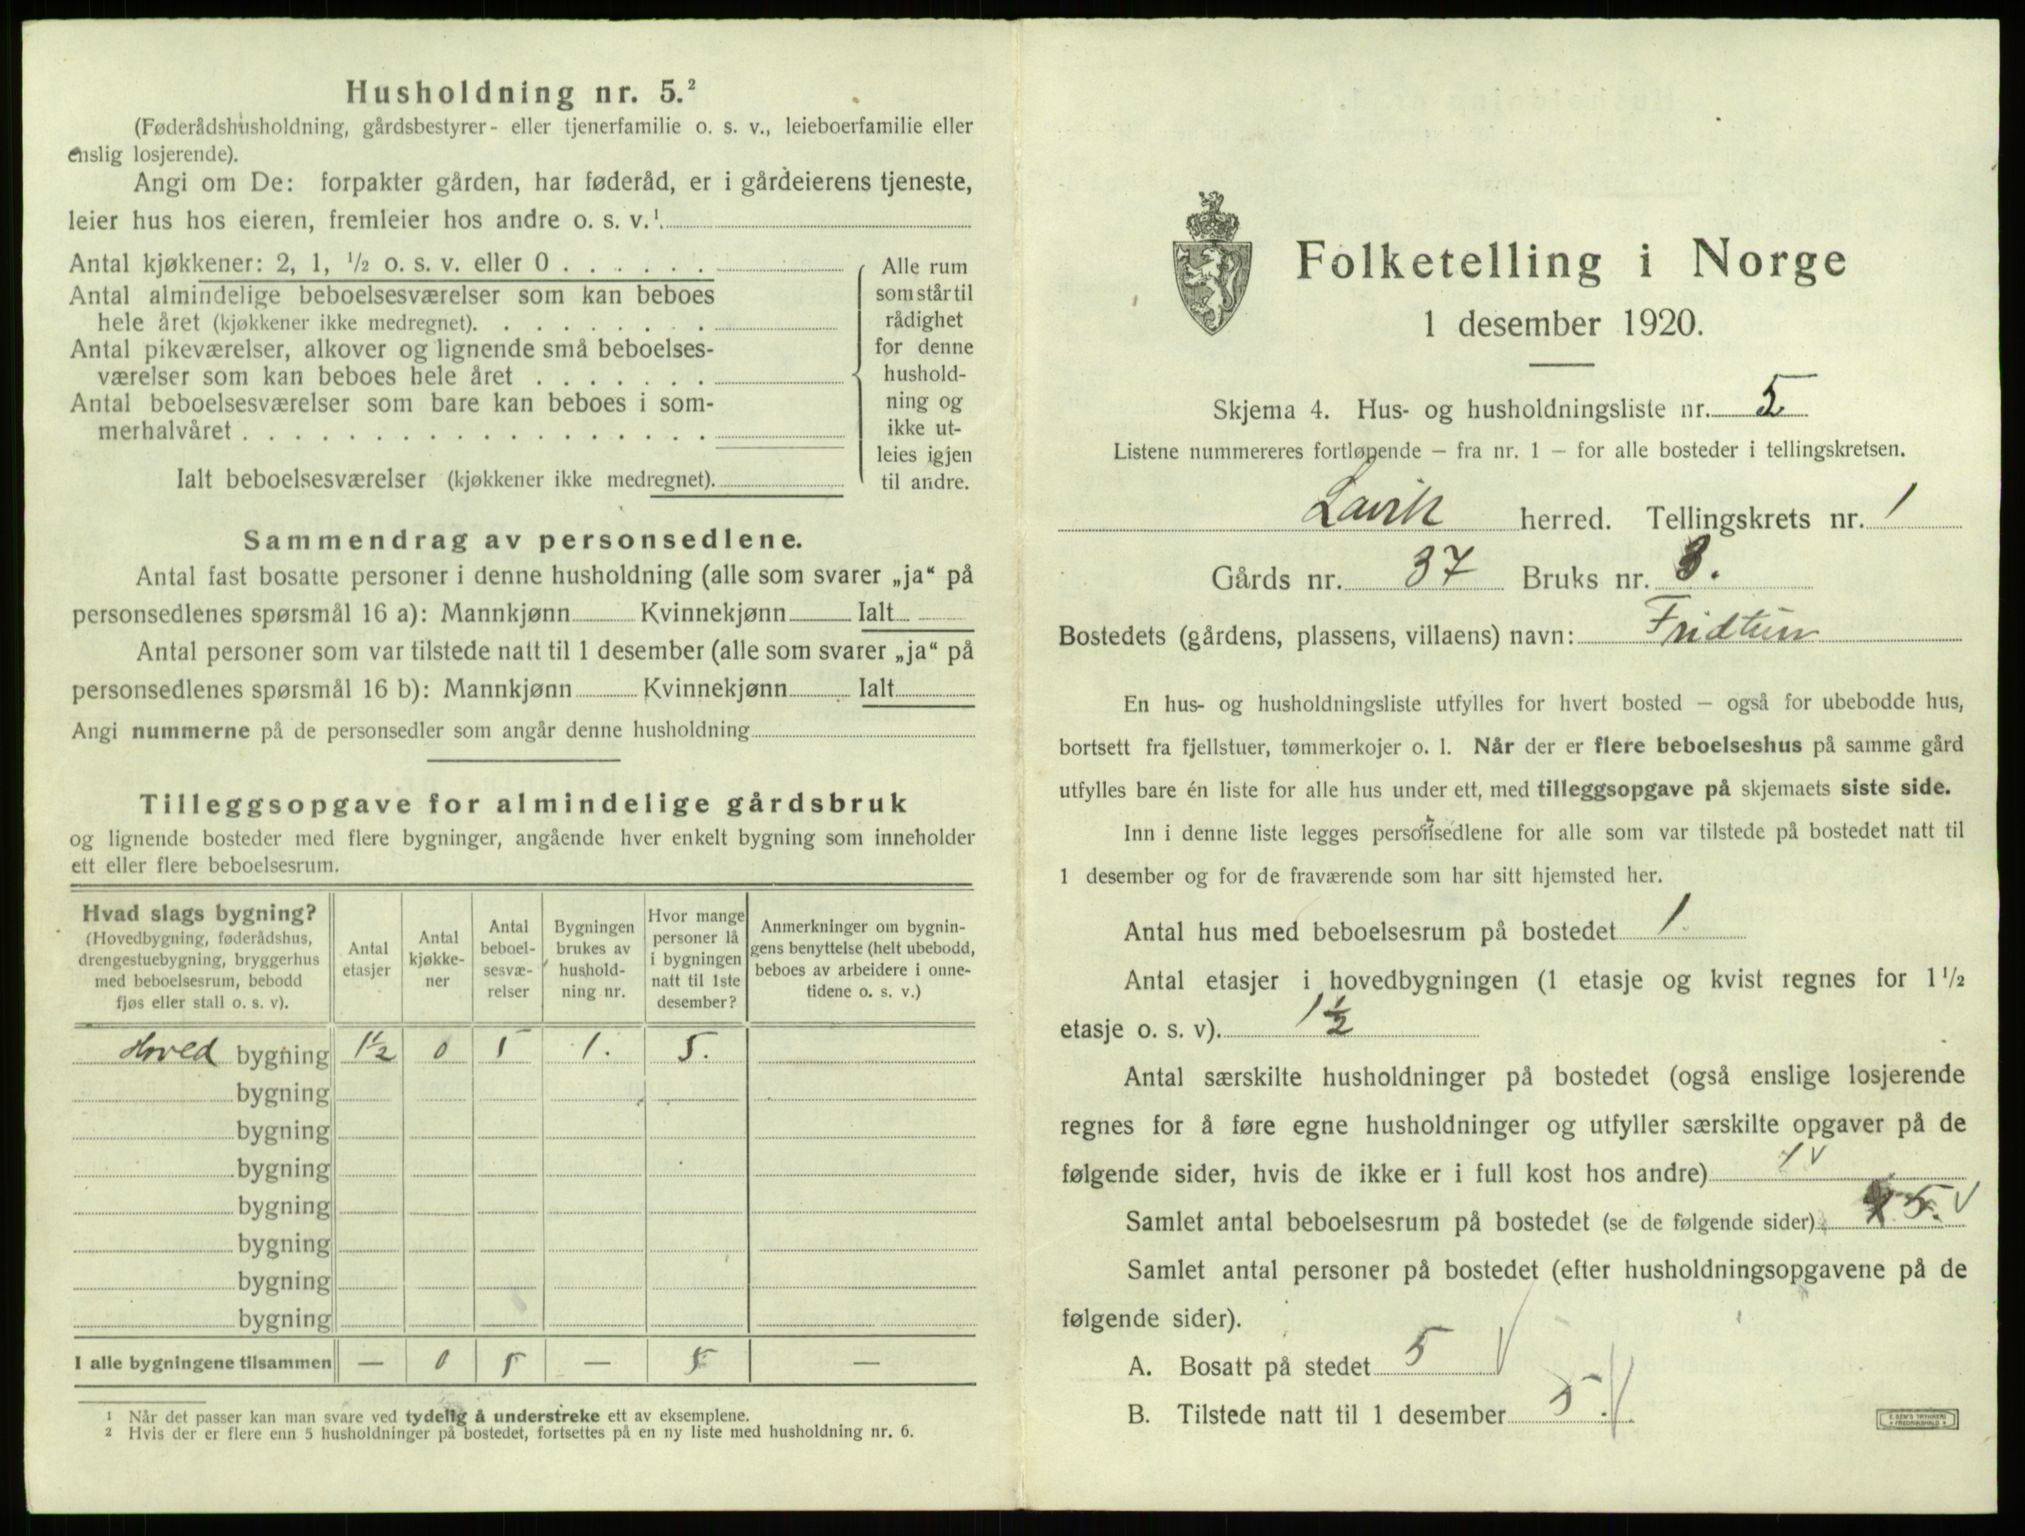 Husholdning nr. 5.²
(Føderådshusholdning, gårdsbestyrer- eller tjenerfamilie o. s. v., leieboerfamilie eller
enslig losjerende).
Angi om De: forpakter gården, har føderåd, er i gårdeierens tjeneste,
leier hus hos eieren, fremleier hos andre o. s. v.¹
Antal kjøkkener: 2, 1, ½ o. s. v. eller 0
Antal almindelige beboelsesværelser som kan beboes
hele året (kjøkkener ikke medregnet).
Antal pikeværelser, alkover og lignende små beboelses-
værelser som kan beboes hele året
Antal beboelsesværelser som bare kan beboes i som-
merhalvåret
Ialt beboelsesværelser (kjøkkener ikke medregnet).
Alle rum
som står til
rådighet
for denne
hushold-
ning og
ikke ut-
leies igjen
til andre.
Sammendrag av personsedlene.
Antal fast bosatte personer i denne husholdning (alle som svarer „ja“ på
personsedlenes spørsmål 16 a): Mannkjønn Kvinnekjønn Ialt
Antal personer som var tilstede natt til 1 desember (alle som svarer „ja“ på
personsedlenes spørsmål 16 b): Mannkjønn Kvinnekjønn Ialt
Angi nummerne på de personsedler som angår denne husholdning
Tilleggsopgave for almindelige gårdsbruk
og lignende bosteder med flere bygninger, angående hver enkelt bygning som inneholder
ett eller flere beboelsesrum.
Hvad slags bygning?
(Hovedbygning, føderådshus,
drengestuebygning, bryggerhus
med beboelsesrum, bebodd
fjøs eller stall o. s. v).
Antal
etasjer
Antal
kjøkke-
ner
Antal
beboel-
sesvæ-
relser
Bygningen
brukes av
hushold-
ning nr.
Hvor mange
personer lå
i bygningen
natt til 1ste
desember?
Anmerkninger om bygnin-
gens benyttelse (helt ubebodd,
beboes av arbeidere i onne-
tidene o. s. v.)
Hoved bygning 1½ 0 5 1. 5.
bygning
bygning
bygning
bygning
bygning
bygning
bygning
I alle bygningene tilsammen — 0 5 — 5 —
¹ Når det passer kan man svare ved tydelig å understreke ett av eksemplene.
² Hvis der er flere enn 5 husholdninger på bostedet, fortsettes på en ny liste med husholdning nr. 6.
Folketelling i Norge
1 desember 1920.
Skjema 4. Hus- og husholdningsliste nr. 5
Listene nummereres fortløpende — fra nr. 1 — for alle bosteder i tellingskretsen.
Lavik herred. Tellingskrets nr. 1
Gårds nr. 37 Bruks nr. 3.
Bostedets (gårdens, plassens, villaens) navn: Fridtun
En hus- og husholdningsliste utfylles for hvert bosted — også for ubebodde hus,
bortsett fra fjellstuer, tømmerkojer o. l. Når der er flere beboelseshus på samme gård
utfylles bare én liste for alle hus under ett, med tilleggsopgave på skjemaets siste side.
Inn i denne liste legges personsedlene for alle som var tilstede på bostedet natt til
1 desember og for de fraværende som har sitt hjemsted her.
Antal hus med beboelsesrum på bostedet 1.
Antal etasjer i hovedbygningen (1 etasje og kvist regnes for 1½
etasje o. s. v). 1½
Antal særskilte husholdninger på bostedet (også enslige losjerende
regnes for å føre egne husholdninger og utfyller særskilte opgaver på de
følgende sider, hvis de ikke er i full kost hos andre) 1 √
Samlet antal beboelsesrum på bostedet (se de følgende sider) 5. √
Samlet antal personer på bostedet (efter husholdningsopgavene på de
følgende sider).
A. Bosatt på stedet 5 √
B. Tilstede natt til 1 desember 5. √